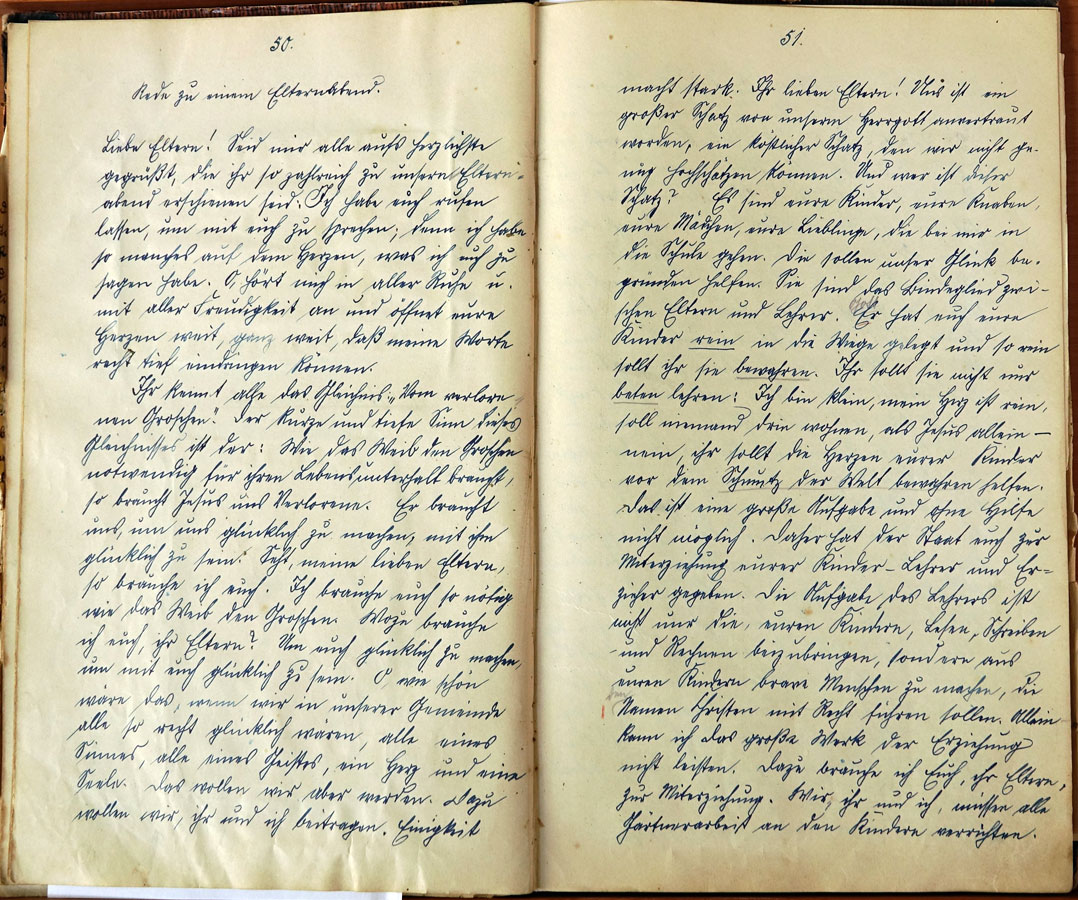 50.
Rede zu einem Elternabend.
Liebe Eltern! Seid mir alle aufs herzlichste
gegrüßt, die ihr so zahlreich zu unserm Eltern-
abend erschienen seid. Ich habe euch rufen
lassen, um mit euch zu sprechen; denn ich habe
so manches auf dem Herzen, was ich euch zu
sagen habe. O, hört mich in aller Ruhe u.
mit aller Freudigkeit an und öffnet eure
Herzen weit, ganz weit, daß meine Worte
recht tief eindringen können.
Ihr kennt alle das Gleichnis: „Vom verlore-
nen Groschen." Der kurze und tiefe Sinn dieses
Gleichnisses ist der: Wie das Weib den Groschen
notwendig für ihren Lebensunterhalt braucht,
so braucht Jesus uns Verlorene. Er braucht
uns, um uns glücklich zu machen, mit ihm
glücklich zu sein. Seht, meine lieben Eltern,
so brauche ich euch. Ich brauche euch so nötig
wie das Weib den Groschen. Wozu brauche
ich euch, ihr Eltern? Um euch glücklich zu machen,
um mit euch glücklich zu sein. O, wie schön
wäre das, wenn wir in unserer Gemeinde
alle so recht glücklich wären, alle eines
Sinnes, alle eines Geistes, ein Herz und eine
Seele. Das wollen wir aber werden. Dazu
wollen wir, ihr und ich beitragen. Einigkeit
51.
macht stark. Ihr lieben Eltern! Uns ist ein
großer Schatz von unserm Herrgott anvertraut
worden, ein köstlicher Schatz, den wir nicht ge-
nug hochschätzen können. Und wer ist dieser
Schatz? Es sind eure Kinder, eure Knaben,
eure Mädchen, eure Lieblinge, die bei mir in
die Schule gehen. Die sollen unser Glück be-
gründen helfen. Sie sind das Bindeglied zwi-
schen Eltern und Lehrer. Er hat euch eure
Kinder rein in die Wiege gelegt und so rein
sollt ihr sie bewahren. Ihr sollt sie nicht nur
beten lehren: Ich bin klein, mein Herz ist rein,
soll niemand drin wohnen, als Jesus allein –
nein, ihr sollt die Herzen eurer Kinder
vor dem Schmutz der Welt bewahren helfen.
Das ist eine große Aufgabe und ohne Hilfe
nicht möglich. Daher hat der Staat euch zur
Miterziehung eurer Kinder – Lehrer und Er-
zieher gegeben. Die Aufgabe des Lehrers ist
nicht nur die, euren Kindern, Lesen, Schreiben
und Rechnen beizubringen, sondern aus
euren Kindern brave Menschen zu machen, die
den
Namen Christen mit Recht führen sollen. Allein
kann ich das große Werk der Erziehung
nicht leisten. Dazu brauche ich Euch, ihr Eltern,
zur Miterziehung. Wir, ihr und ich, müssen alle
Gärtnerarbeit an den Kindern verrichten.